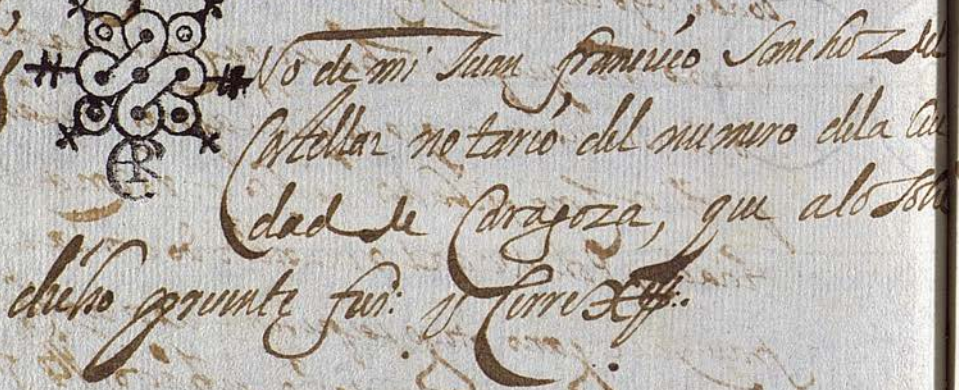 No de mi Juan Francisco Sanchoz del
Castellar notario del numero dela Ciu
dad de Caragoza, que alo sobre
dicho presente fui: y Cerre